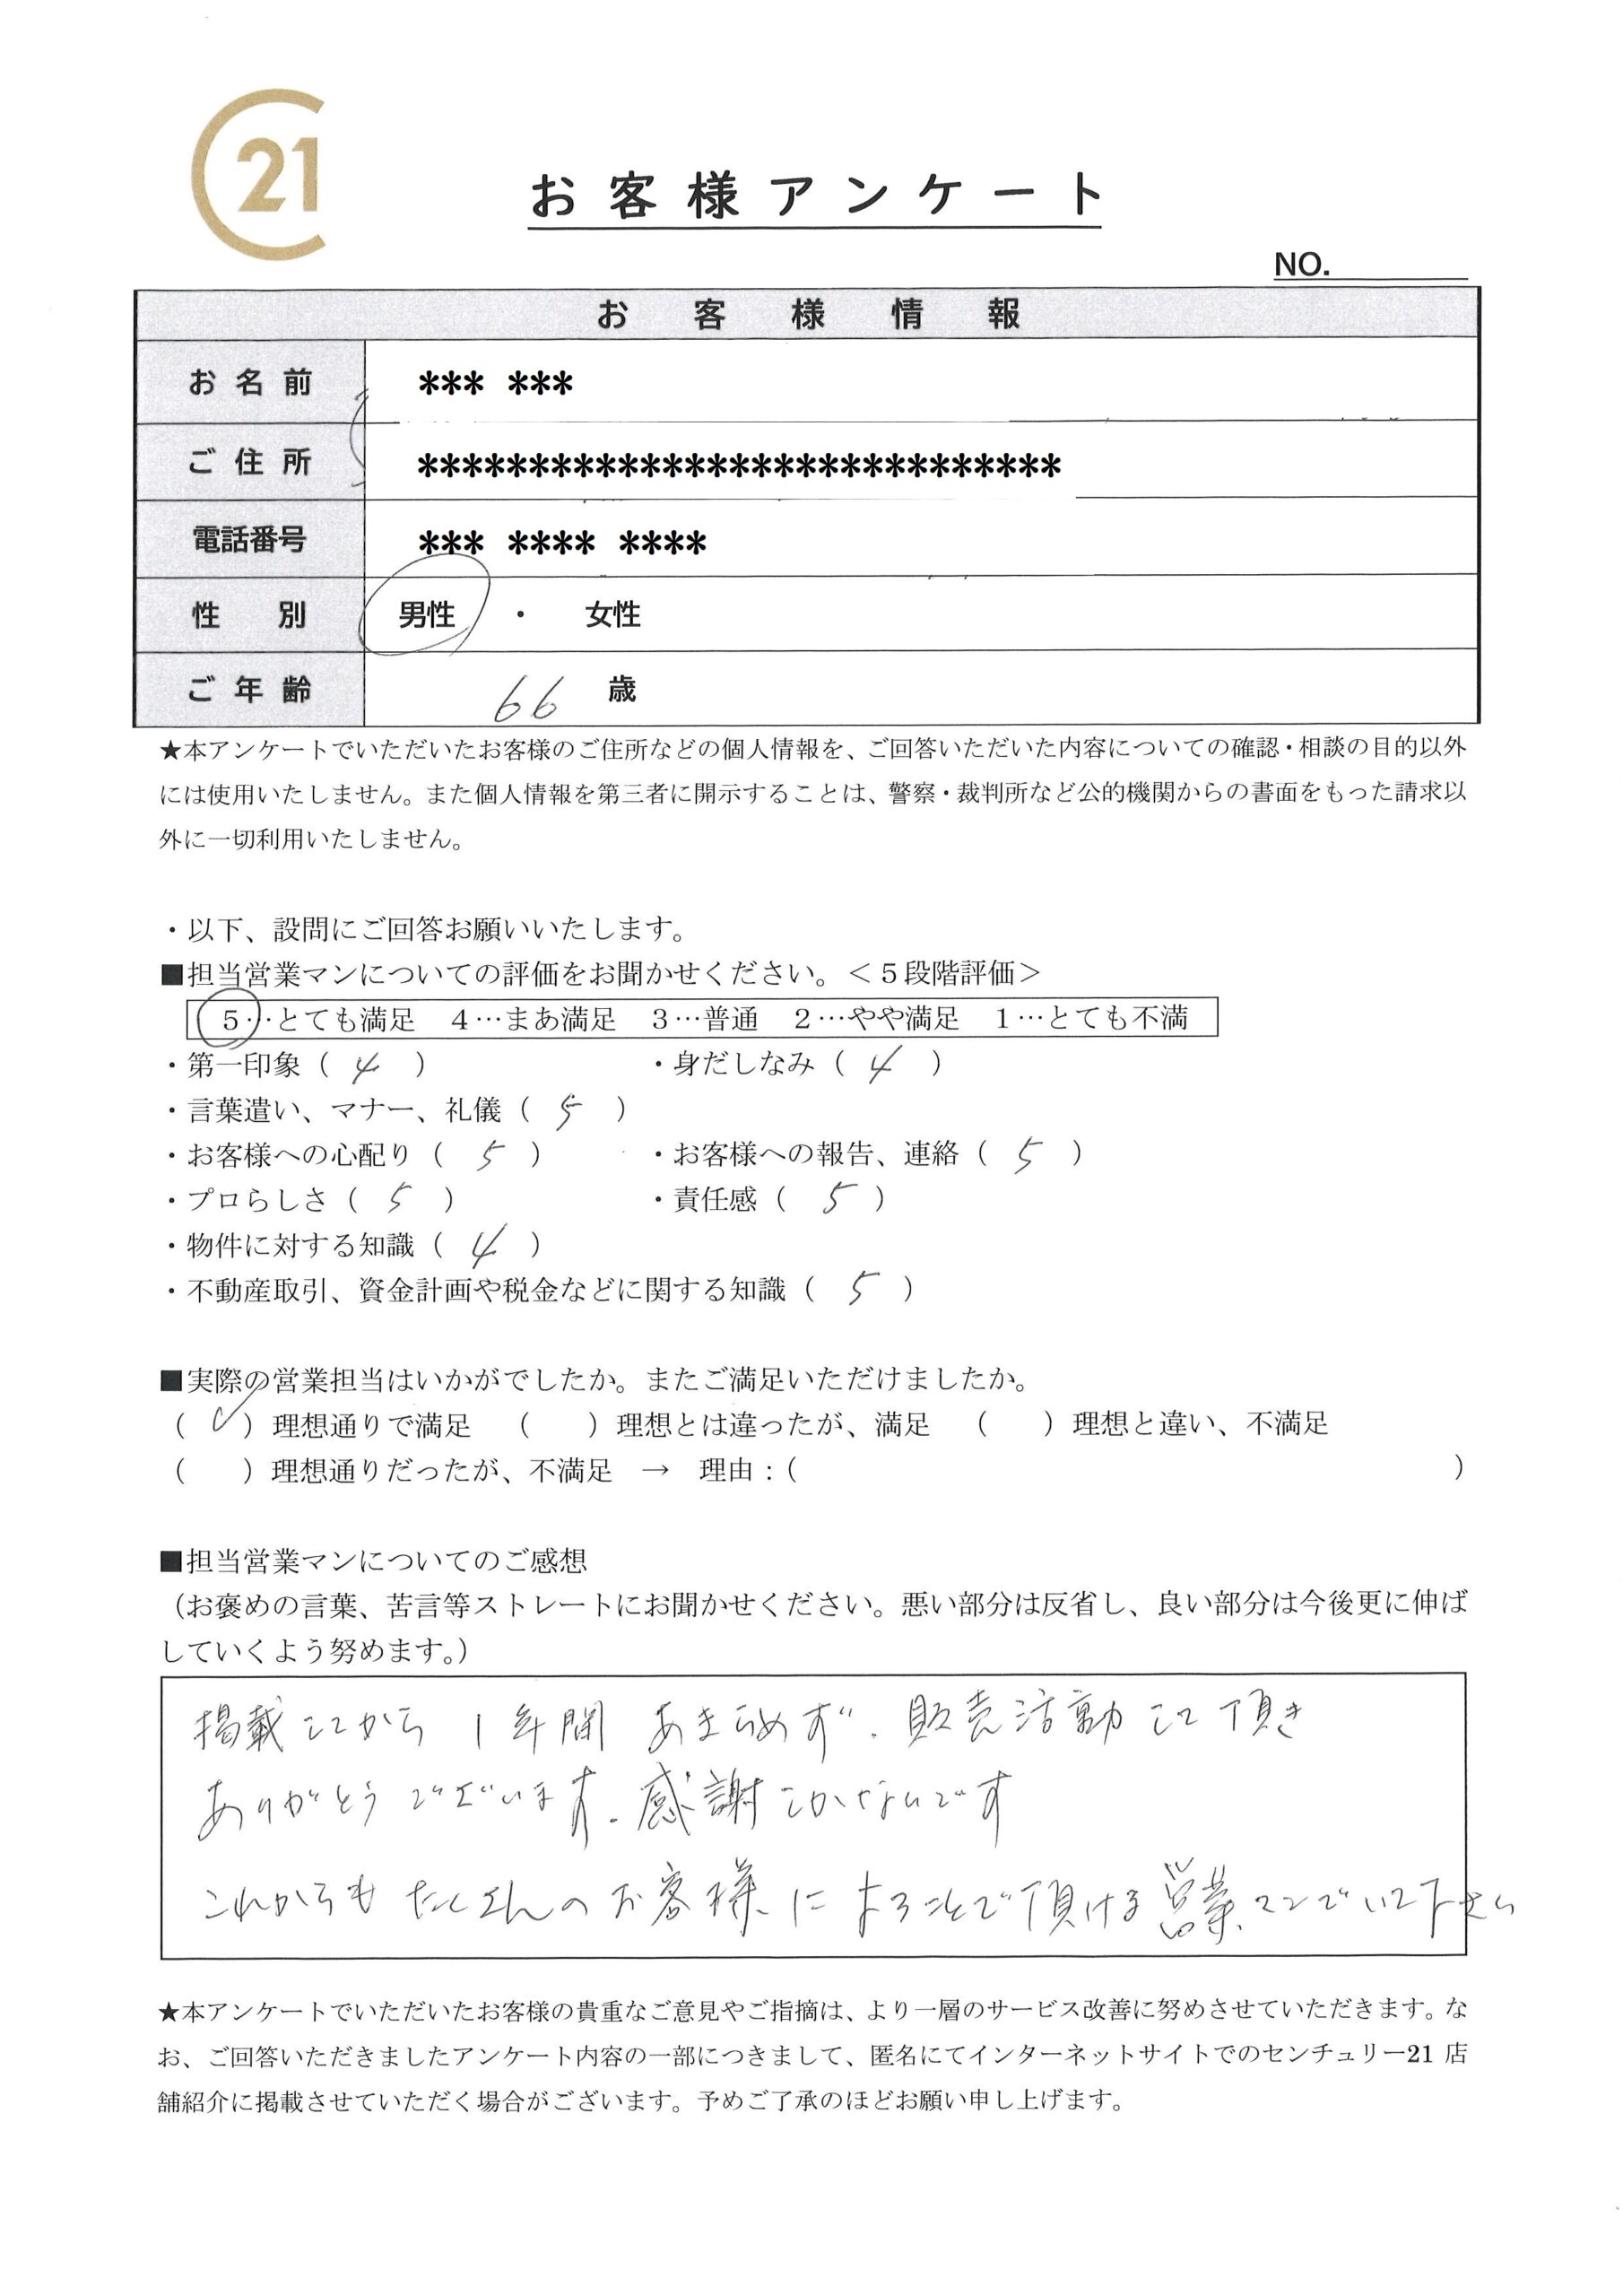 C21
お客様アンケート
NO.
お客様情報
お名前 *** ***
ご住所 *****************************
電話番号 *** **** ****
性別 男性 ・ 女性
ご年齢 66 歳
★本アンケートでいただいたお客様のご住所などの個人情報を、ご回答いただいた内容についての確認・相談の目的以外
には使用いたしません。また個人情報を第三者に開示することは、警察・裁判所など公的機関からの書面をもった請求以
外に一切利用いたしません。
・以下、設問にご回答お願いいたします。
■担当営業マンについての評価をお聞かせください。＜５段階評価＞
５…とても満足 ４…まあ満足 ３…普通 ２…やや満足 １…とても不満
・第一印象（ 4 ） ・身だしなみ（ 4 ）
・言葉遣い、マナー、礼儀（ 5 ）
・お客様への心配り（ 5 ） ・お客様への報告、連絡（ 5 ）
・プロらしさ（ 5 ） ・責任感（ 5 ）
・物件に対する知識（ 4 ）
・不動産取引、資金計画や税金などに関する知識（ 5 ）
■実際の営業担当はいかがでしたか。またご満足いただけましたか。
（ ✓ ）理想通りで満足 （ ）理想とは違ったが、満足 （ ）理想と違い、不満足
（ ）理想通りだったが、不満足 → 理由：（ ）
■担当営業マンについてのご感想
（お褒めの言葉、苦言等ストレートにお聞かせください。悪い部分は反省し、良い部分は今後更に伸ば
していくよう努めます。）
掲載してから 1年間 あきらめず、販売活動して頂き
ありがとうございます。感謝しかないです
これからも たくさんの お客様に よろこんで頂ける 営業マンでいて下さい
★本アンケートでいただいたお客様の貴重なご意見やご指摘は、より一層のサービス改善に努めさせていただきます。な
お、ご回答いただきましたアンケート内容の一部につきまして、匿名にてインターネットサイトでのセンチュリー21 店
舗紹介に掲載させていただく場合がございます。予めご了承のほどお願い申し上げます。